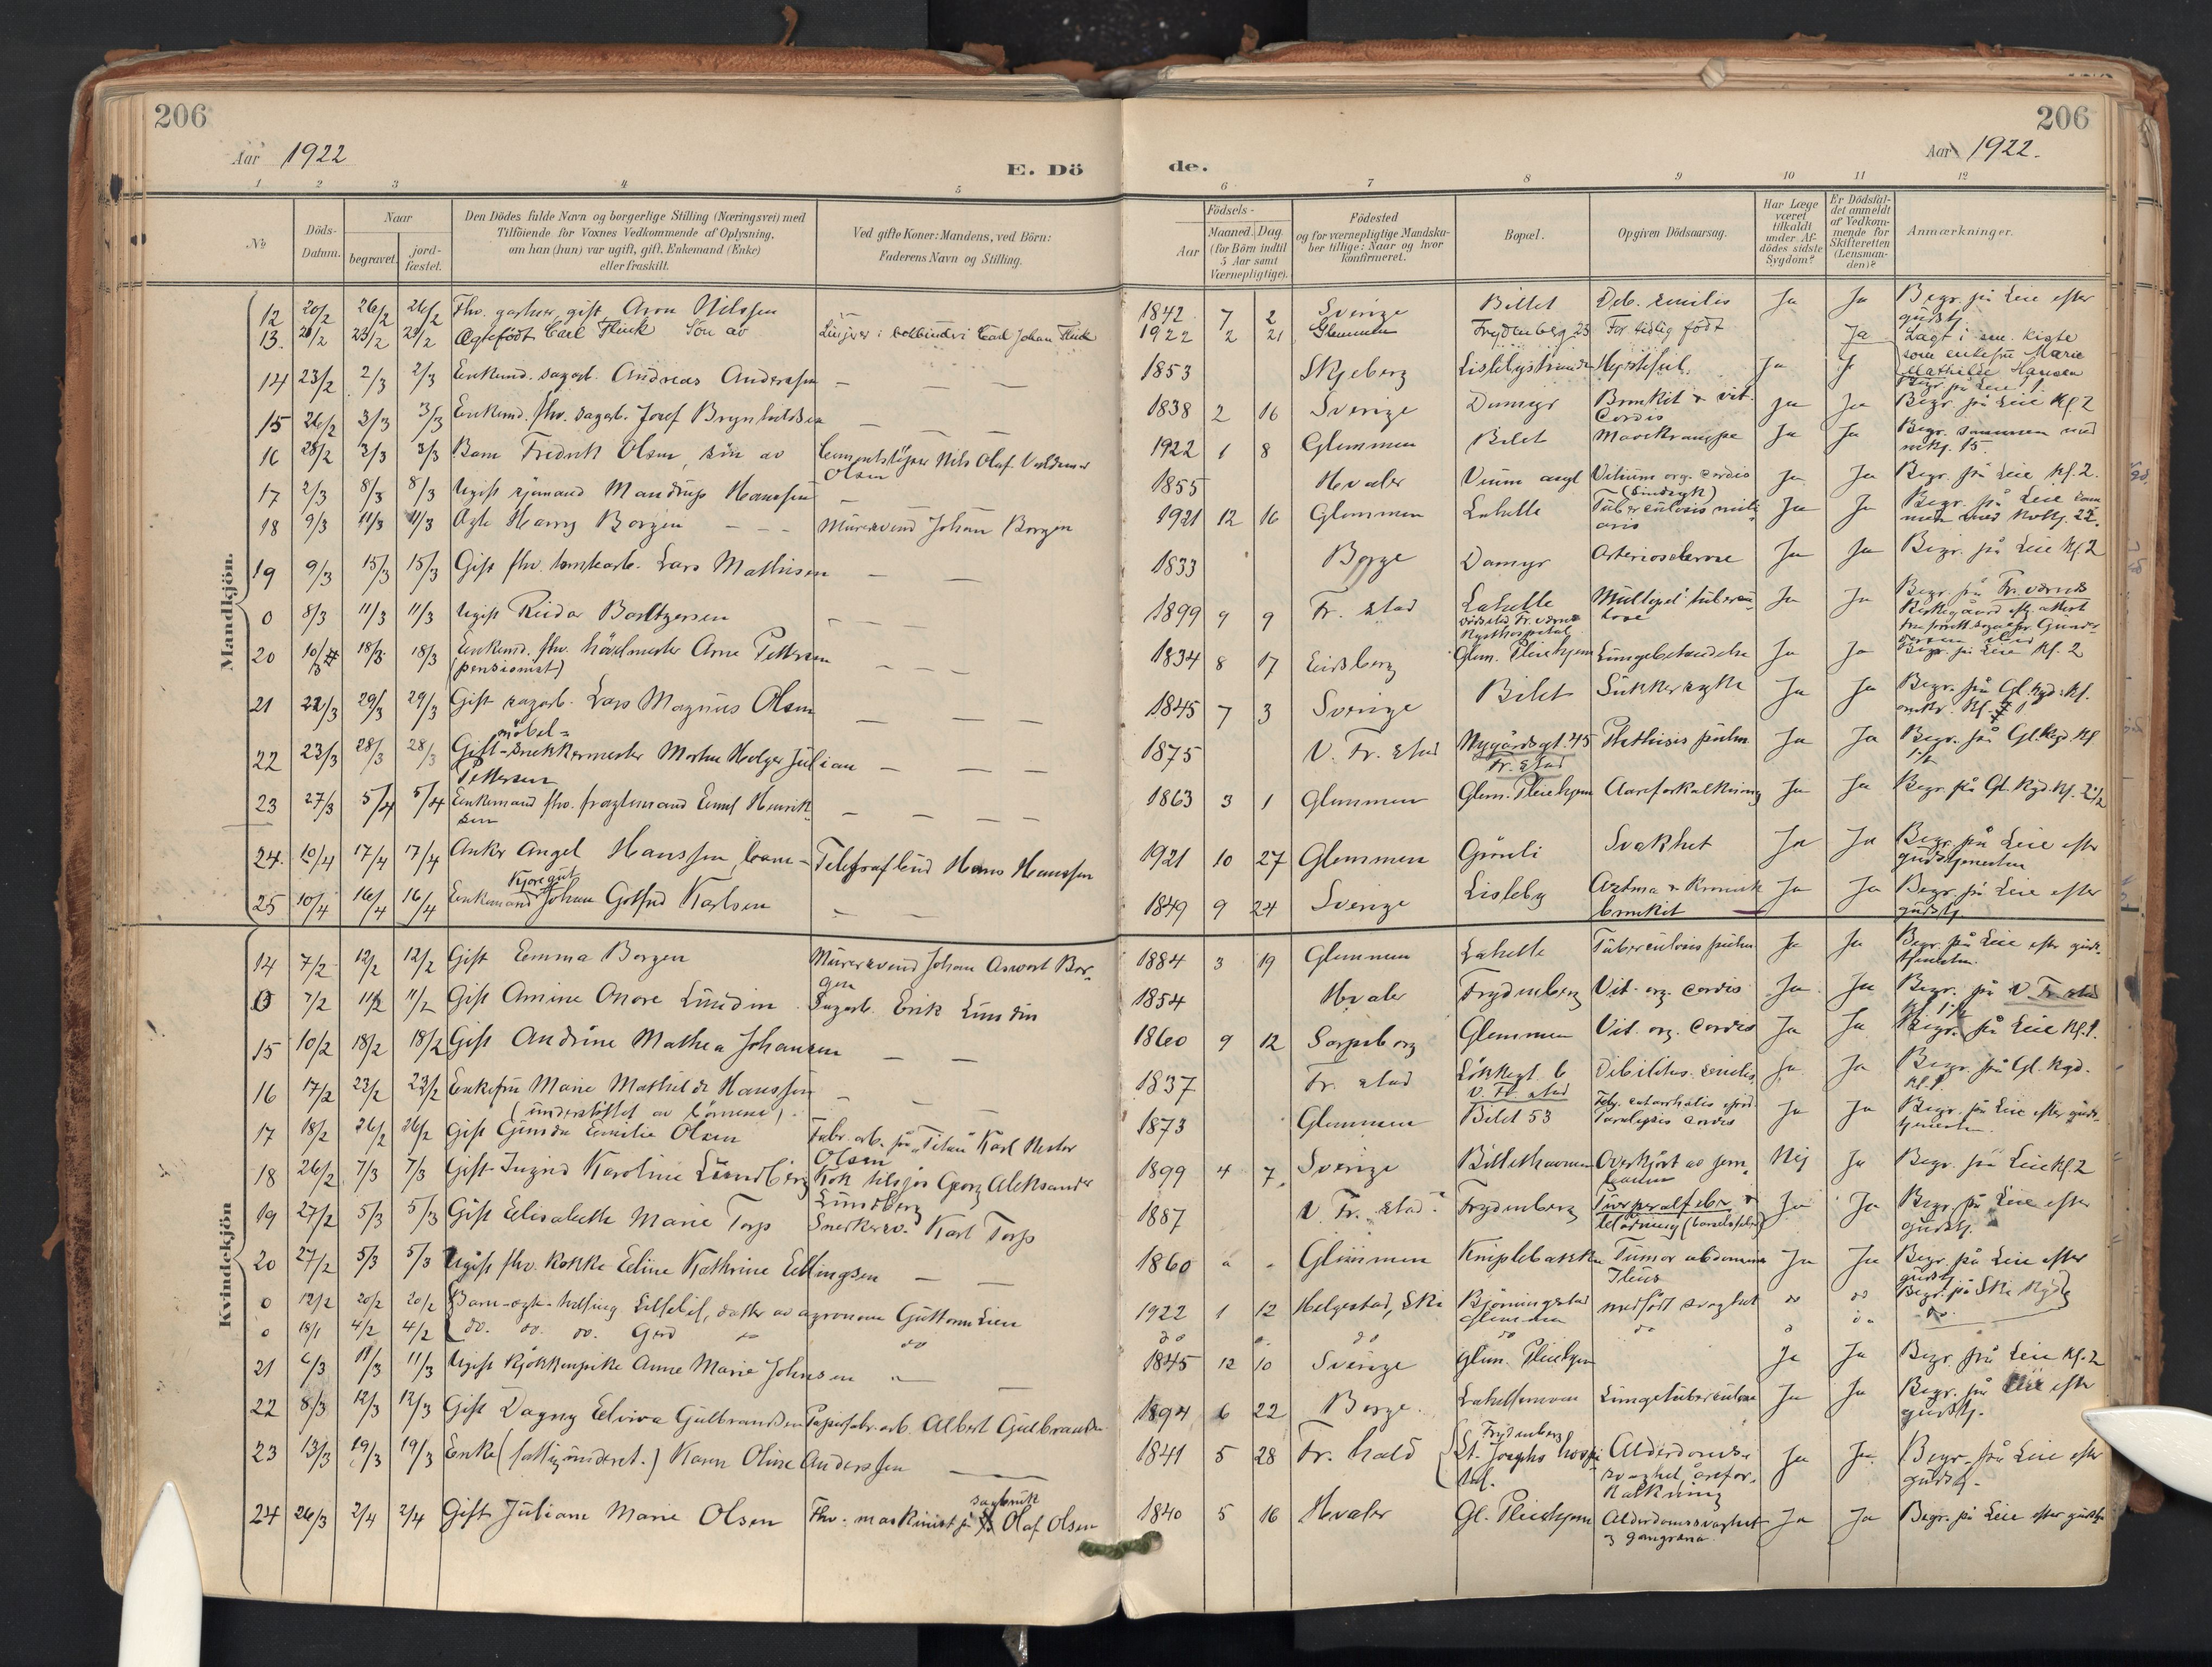 206
206
Aar 1922
E. Dö
de.
Aar 1922.
1 2 3 4 5 6 7 8 9 10 11 12
No
Döds-
Datum.
Naar
begravet.
jord-
fæstet.
Den Dödes fulde Navn og borgerlige Stilling (Næringsvei) med
Tilföiende for Voxnes Vedkommende af Oplysning,
om han (hun) var ugift, gift, Enkemand (Enke)
eller fraskilt.
Ved gifte Koner: Mandens, ved Börn:
Faderens Navn og Stilling.
Födsels-
Aar
Maaned. Dag.
(for Börn indtil
5 Aar samt
Værnepligtige).
Födested
og for værnepligtige Mandska-
ber tillige: Naar og hvor
konfirmeret.
Bopæl.
Opgiven Dödsaarsag.
Har Læge
været
tilkaldt
under Af-
dödes sidste
Sygdom?
Er Dödsfal-
det anmeldt
af Vedkom-
mende for
Skifteretten
(Lensman-
den)?
Anmærkninger.
Mandkjön.
12 20/2 26/2 26/2 Fhv. gartner, gift, Aron Nilssen 1842 7 2 Sverige Billet Deb. senilis Ja Ja Begr. på Leie efter
gudstj.
13. 21/2 23/2 23/2 Ægtefödt Carl Flink Sön av Carl Johan Flink 1922 2 21 Glemmen Frydenberg 23 For tidlig födt Ja Lagt i sm. kiste
som enkefru Marie
Mathilde Hansen
14 23/2 2/3 2/3 Enkemd. sagarb. Andreas Anderssen 1853 Skjeberg Lislebystranden Hjertefeil. Ja Ja Begr. på Leie 1.
15 26/2 3/3 3/3 Enkemd. fhv. sagarb. Josef Brynhildsen 1838 2 16 Sverige Damyr Bronkit & vit.
Cordis Ja Ja Begr. på Leie Kl. 2
16 28/2 3/3 3/3 Barn Fredrik Olsen, sön av Cementstöper Nils Olaf Valdemar
Olsen 1922 1 8 Glemmen Bilet Mavekrampe Ja Ja Begr. sammen med
mkj. 15.
17 2/3 8/3 8/3 Ugift sjömand Mandrup Hanssen 1855 Hvaler Vitium org. cordis
(sindsyk) Ja Ja Begr. på Leie Kl. 2.
18 9/3 11/3 11/3 Ægte Harry Borgen Murersvend Johan Borgen 1921 12 16 Glemmen Lahelle Tuberculosis mili-
aris Ja Ja Begr. på Leie sam-
men med kvkj. 22.
19 9/3 15/3 15/3 Gift fhv. tomtearb. Lars Mathisen 1833 Borge Damyr Arteriosclerose Ja Ja Begr. på Leie Kl 2
0 8/3 11/3 11/3 Ugift Reidar Baltzersen 1899 9 9 Fr. stad Lahelle
dödssted Fr. værns
Kysthospital Multipel tubercu-
lose Ja Ja Begr. på Fr. værns
Kirkegaard eft. attest
20 10/3 18/3 18/3 Enkemd. fhv. hövlmester Arne Pettersen
(pensionist) 1834 8 17 Eidsberg Glem. Pleiehjem Lungebetændelse Ja Ja Begr. på Leie Kl. 2
21 22/3 29/3 29/3 Gift sagarb. Lars Magnus Olsen 1845 7 3 Sverige Bilet Sukkersyke Ja Ja Begr. på Gl. Kgd. Kl.
22 23/3 28/3 28/3 Gift möbel-
snekkermester Morten Holger Julian
Pettersen 1875 V. Fr. stad Nygårdsgt. 45
Fr. stad Phthisis pulm. Ja Ja Begr. på Gl. Kgd. Kl.
1 1/2
23 27/3 5/4 5/4 Enkemand fhv. fragtemand Emil Henrik-
sen 1863 3 1 Glemmen Glem. Pleiehjem Aareforkalkning Ja Ja Begr. på Gl. Kgd. Kl. 2 1/2
24. 10/4 17/4 17/4 Anker Angel Hanssen, barn Telegrafbud Hans Hanssen 1921 10 27 Glemmen Gunli Svakhet Ja Ja Begr. på Leie efter
gudstjenesten
25 10/4 16/4 16/4 Enkemand Kjöregut
Johan Gotfred Karlsen 1849 9 24 Sverige Lisleby Astma & Kronisk
bronkit Ja Ja Begr. på Leie efter
gudstj.
Kvindekjön
14 7/2 12/2 12/2 Gift Emma Borgen Murersvend Johan Anvort Bor-
gen 1884 3 19 Glemmen Lahelle Tuberculosis pulm Ja Ja Begr. på Leie efter guds-
tjenesten.
0 7/2 11/2 11/2 Gift Amine Onore Lundin Sagarb. Erik Lundin 1854 Hvaler Frydenberg Vit. org. cordis Ja Ja Begr. på V. Fr. stad
Kl. 1 1/2
15 10/2 18/2 18/2 Gift Andrine Mathea Johansen 1860 9 12 Sarpsborg Glemmen Vit. org. Cordis Ja Ja Begr. på Leie Kl. 1.
16 17/2 23/2 23/2 Enkefru Marie Mathilde Hanssen
(understöttet av börnene) 1837 Fr. stad Lökkegt. 6
V. Fr. stad Debilitas senilis Ja Ja Begr. på Gl. Kgd.
Kl. 1.
17 18/2 26/2 26/2 Gift Gunda Emilie Olsen Fabr. arb. på „Titan" Karl Nestor
Olsen 1873 Glemmen Bilet 53 Feb. catarrhalis epid.
Paralysis cordis Ja Ja Begr. på Leie efter guds-
tjenesten.
18 26/2 7/3 7/3 Gift Ingrid Karoline Lundberg Kok tilsjös Georg Aleksander
Lundberg 1899 4 7 Sverige Billethavnen Overkjört av jern-
banen Nei Ja Begr. på Leie Kl. 2
19 27/2 5/3 5/3 Gift Elisabeth Marie Torp Snekkersv. Karl Torp 1887 V. Fr. stad Frydenberg Puerperalfeber &
blödning (barselfeber) Ja Ja Begr. på Leie efter
gudstj.
20 27/2 5/3 5/3 Ugift fhv. kokke Eline Kathrine Ellingsen 1860 Glemmen Kniplebakken Tumor abdominis
Ileus Ja Ja Begr. på Leie efter
gudstj.
0 12/2 20/2 20/2 Barn-egte-tvilling Lillelif, datter av agronom Guttorm Lien 1922 1 12 Helgestad, Ski Bjørningstad
Glemmen medfödt svaghet do do Begr. på Ski Kgd.
0 18/1 4/2 4/2 do. do. do. Gerd do do do do do do
21 6/3 11/3 11/3 Ugift Kjökkenpike Anne Marie Johnsen 1845 12 10 Sverige Glem. Pleiehjem Ja Ja Begr. på Leie Kl. 2
22 8/3 12/3 12/3 Gift Dagny Elvira Gulbrandsen Papirfabr. arb. Albert Gulbrandsen 1894 6 22 Borge. Lungetuberculose Ja Ja Begr. på Leie efter
gudstj.
23 13/3 19/3 19/3 Enke (fattigunderst.) Karen Oline Anderssen 1841 5 28 Fr. hald Frydenberg
St. Josephs hospi-
tal. Alderdoms-
svaghet, årefor-
kalkning Ja Ja Begr. på Leie efter
gudstj.
24 26/3 2/4 2/4 Gift Juliane Marie Olsen Fhv. maskinist på sagbruk
Olaf Olsen 1840 5 16 Hvaler Gl. Pleiehjem Alderdomssvaghet
& gangræna Ja Ja Begr. på Leie efter gudstj.